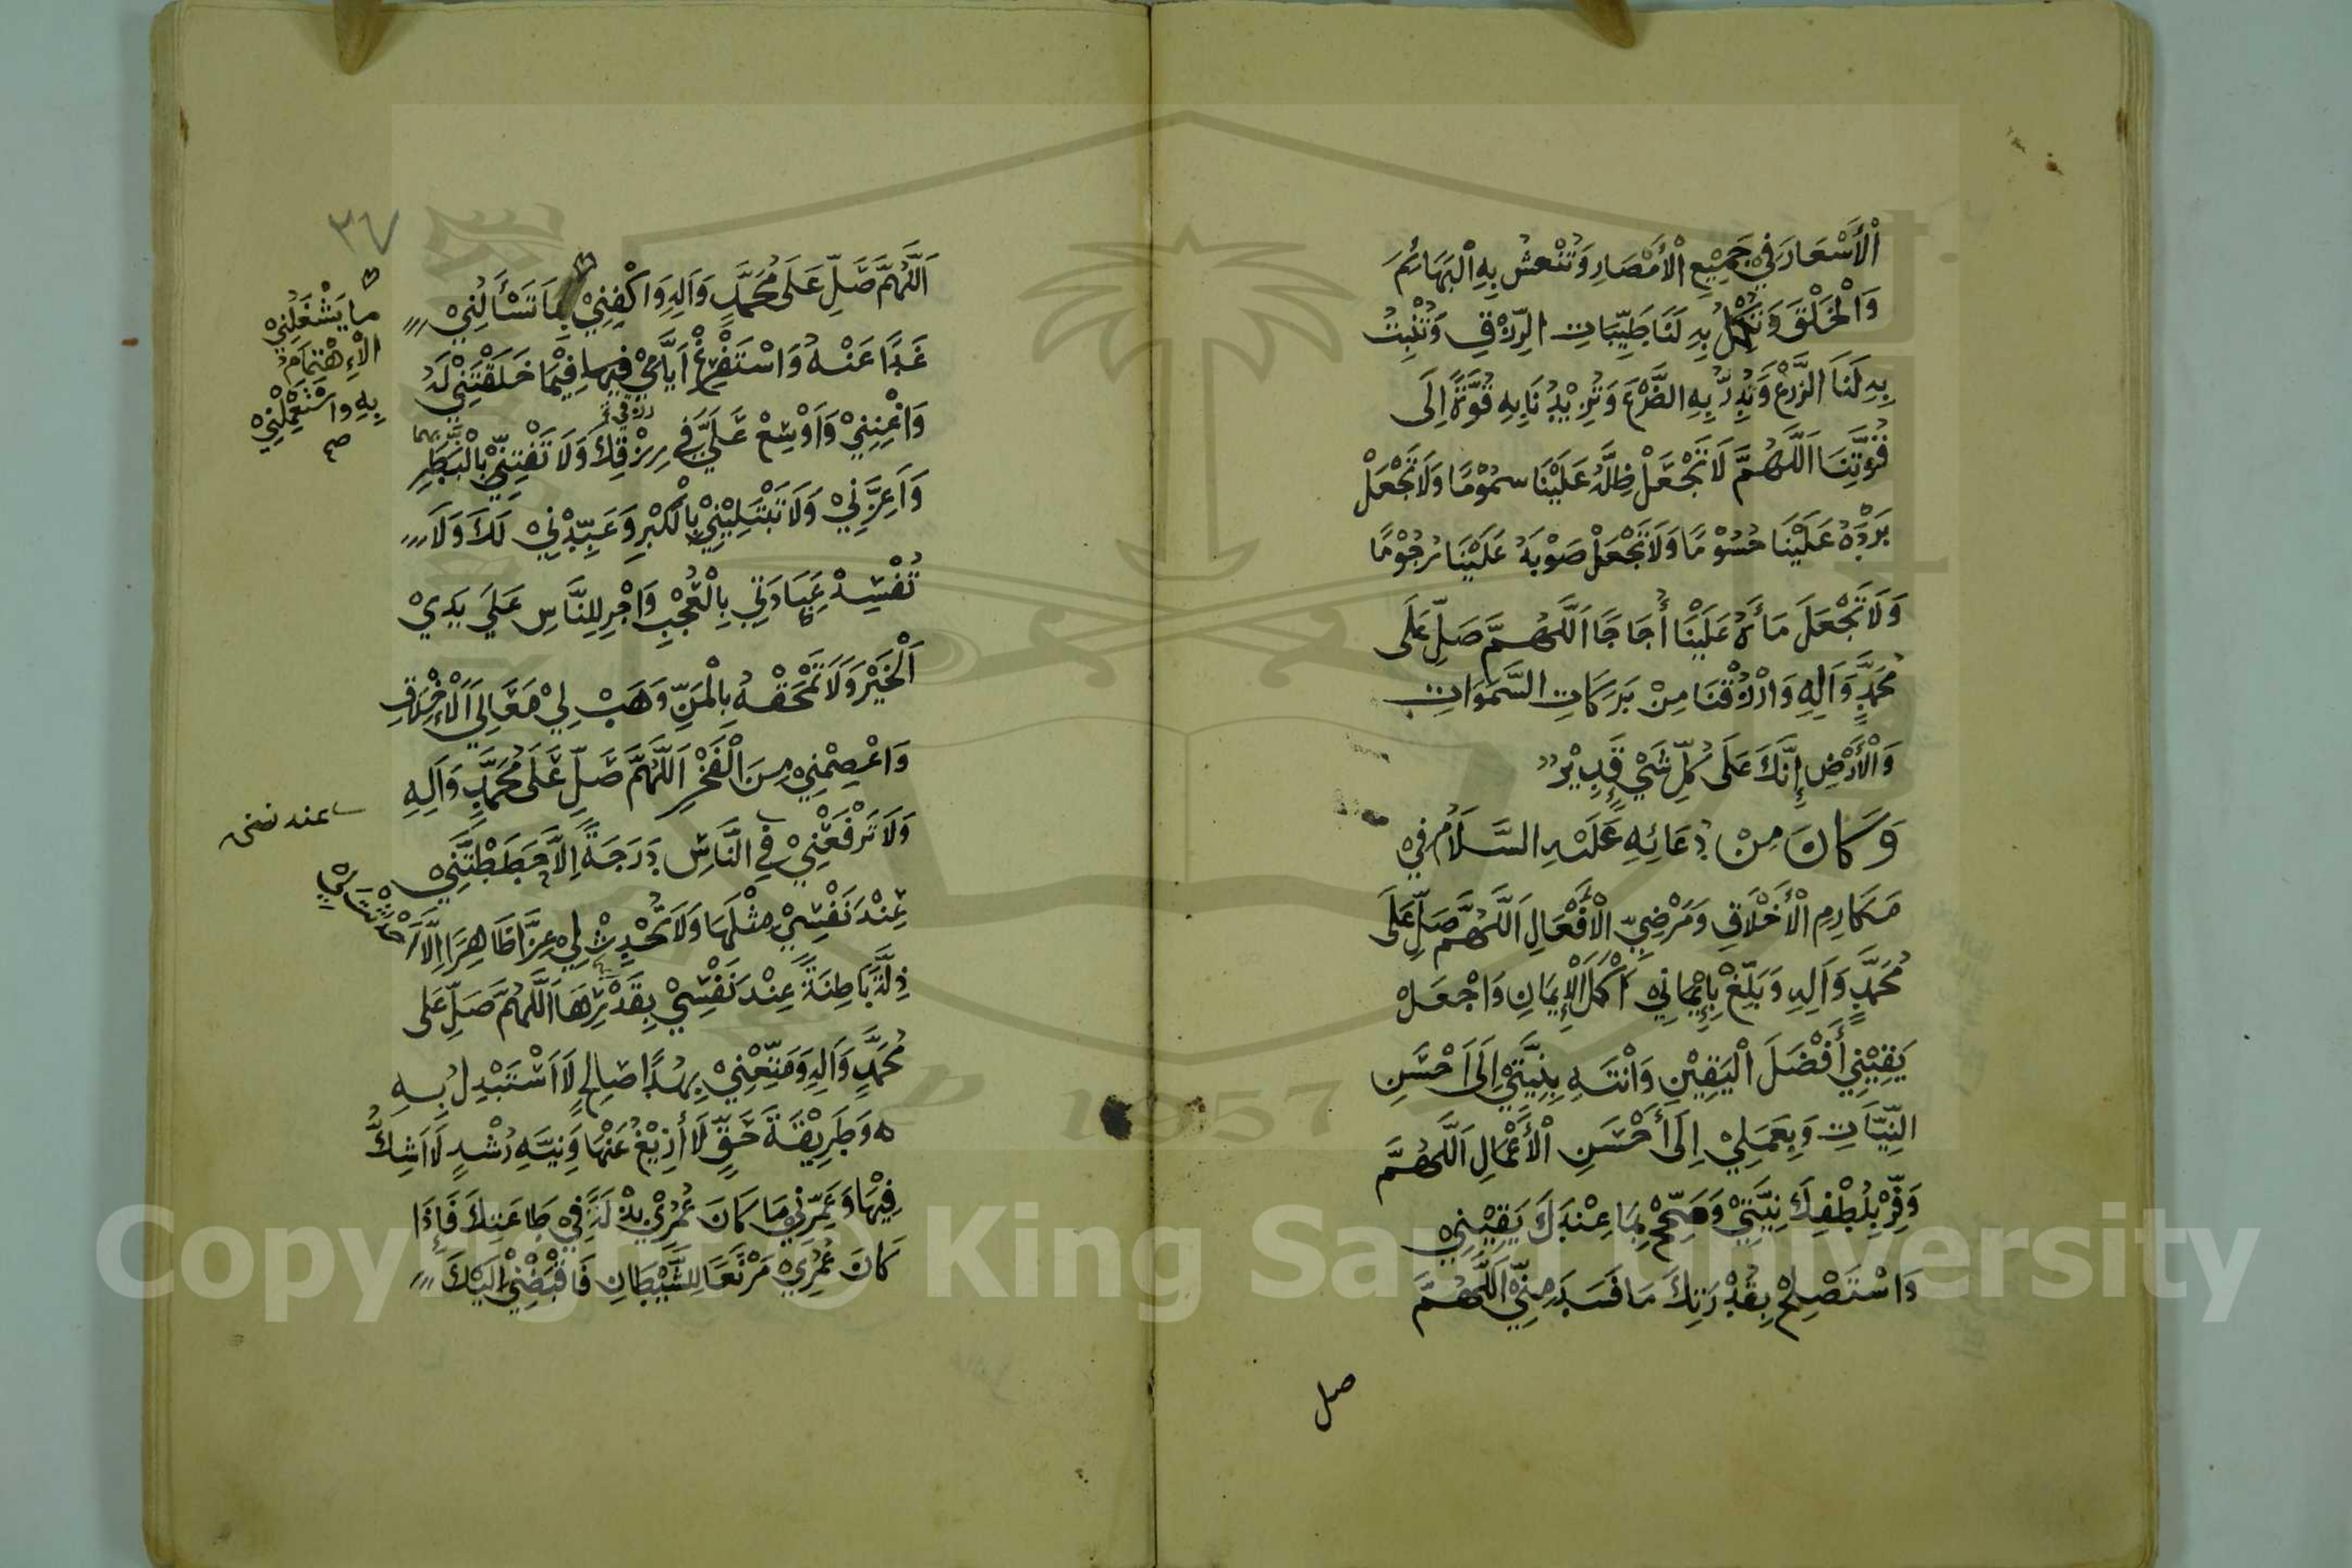 اْلأَسْعَارَ فِي جَمِيْعِ اْلأَمْصَارِ وَتُنْعِشُ بِهِ اْلبَهَائِمَ
وَاْلخَلْقَ وَتُكْمِلُ بِهِ لَنَا طَيِّبَاتِ الرِّزْقِ وَتُنْبِتُ
بِهِ لَنَا الزَّرْعَ وَتُدِرُّ بِهِ الضَّرْعَ وَتَزِيْدُنَا بِهِ قُوَّةً اِلَى
قُوَّتِنَا اَللَّهُمَّ لَا تَجْعَلْ ظِلَّهُ عَلَيْنَا سَمُوْمًا وَلَا تَجْعَلْ
بَرْدَهُ عَلَيْنَا حُسُوْمًا وَلَا تَجْعَلْ صَوْبَهُ عَلَيْنَا رُجُوْمًا
وَلَا تَجْعَلْ مَاءَهُ عَلَيْنَا أُجَاجًا اَللَّهُمَّ صَلِّ عَلَى
مُحَمَّدٍ وَآلِهِ وَارْزُقْنَا مِنْ بَرَكَاتِ السَّمَوَاتِ
وَاْلأَرْضِ إِنَّكَ عَلَى كُلِّ شَيْءٍ قَدِيْرٌ
وَكَانَ مِنْ دُعَائِهِ عَلَيْهِ السَّلَامُ فِي
مَكَارِمِ اْلأَخْلَاقِ وَمَرْضِيِّ اْلأَفْعَالِ اَللَّهُمَّ صَلِّ عَلَى
مُحَمَّدٍ وَآلِهِ وَبَلِّغْ بِإِيْمَانِي أَكْمَلَ اْلإِيمَانِ وَاجْعَلْ
يَقِيْنِي أَفْضَلَ الْيَقِيْنِ وَانْتَهِ بِنِيَّتِيْ اِلَى اَحْسَنِ
النِّيَّاتِ وَبِعَمَلِيْ اِلَى أَحْسَنِ اْلأَعْمَالِ اَللَّهُمَّ
وَفِّرْ بِلُطْفِكَ نِيَّتِيْ وَصَحِّحْ بِمَا عِنْدَكَ يَقِيْنِيْ
وَاسْتَصْلِحْ بِقُدْرَتِكَ مَا فَسَدَ مِنِّيْ اَللَّهُمَّ
صل
٣٧
اَللَّهُمَّ صَلِّ عَلَى مُحَمَّدٍ وَآلِهِ وَاكْفِنِيْ بِمَا تَسْأَلُنِيْ
غَدًا عَنْهُ وَاسْتَفْرِغْ اَيَّامِيْ فِيهَا فِيْمَا خَلَقْتَنِيْ لَهُ
وَاغْنِنِيْ وَاَوْسِعْ عَلَيَّ فِي رِزْقِكَ وَلَا تَفْتِنِّيْ بِالْبَطَرِ
وَاَعِزَّنِيْ وَلَا تَبْتَلِيْنِيْ بِالْكِبْرِ وَعَبِّدْنِيْ لَكَ وَلَا
تُفْسِدْ عِبَادَتِي بِالْعُجْبِ وَاَجْرِ لِلنَّاسِ عَلَى يَدِيْ
اَلْخَيْرَ وَلَا تَمْحَقْهُ بِالْمَنِّ وَهَبْ لِيْ مَعَالِيَ اْلأَخْلَاقِ
وَاعْصِمْنِيْ مِنَ الْفَخْرِ اَللَّهُمَّ صَلِّ عَلَى مُحَمَّدٍ وَآلِهِ
وَلَا تَرْفَعْنِيْ فِي النَّاسِ دَرَجَةً اِلَّا حَطَطْتَنِيْ
عِنْدَ نَفْسِيْ مِثْلَهَا وَلَا تُحْدِثْ لِيْ عِزًّا ظَاهِرًا اِلَّا اَحْدَثْتَ لِي
ذِلَّةً بَاطِنَةً عِنْدَ نَفْسِيْ بِقَدْرِهَا اَللَّهُمَّ صَلِّ عَلَى
مُحَمَّدٍ وَآلِهِ وَمَتِّعْنِيْ بِهُدًا صَالِحٍ لَا اَسْتَبْدِلُ بِهِ
وَطَرِيْقَةَ حَقٍّ لَا أَزِيْغُ عَنْهَا وَنِيَّةِ رُشْدٍ لَا اَشُكُّ
فِيْهَا وَعَمِّرْنِي مَا كَانَ عُمْرِيْ بِذْلَةً فِيْ طَاعَتِكَ فَإِذَا
كَانَ عُمْرِيْ مَرْتَعًا لِلشَّيْطَانِ فَاقْبِضْنِيْ اِلَيْكَ
مايَشْغَلُنِيْ
الْاِهْتِمَامُ
بِهِ وَاسْتَعْمِلْنِيْ
صح
Copyright © King Saud University
1957